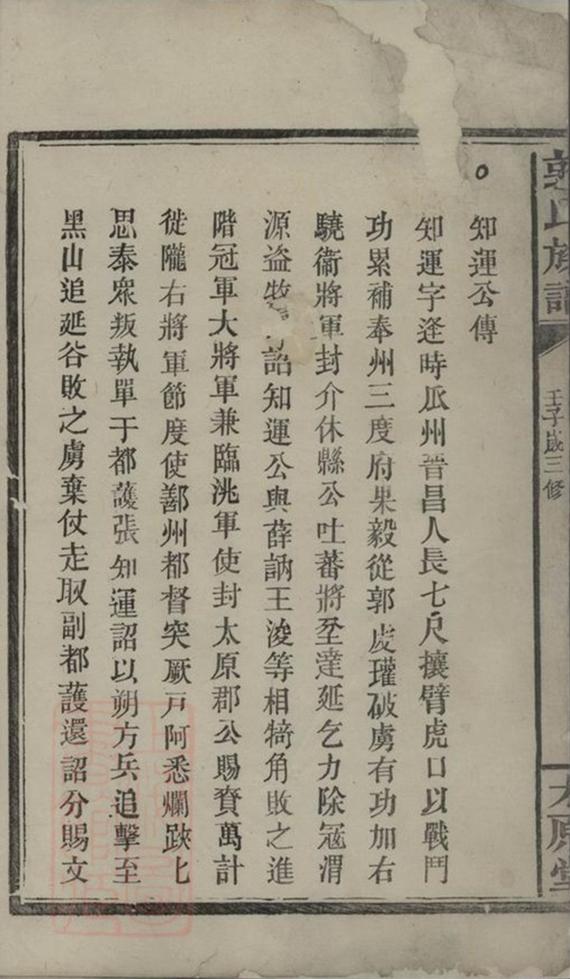 知運公傳
知運字逄時瓜州晋昌人長七尺攘臂虎口以戰鬥
功累補奉州三度府果毅從郭虔瓘破虜有功加右
驍衛將軍封介休縣公吐蕃將坌達延乞力除冦渭
源盗牧詔知運公與薛訥王浚等相犄角敗之進
階冠軍大將軍兼臨洮軍使封太原郡公賜賚萬計
徙隴右將軍節度使鄯州都督突厥戸阿悉爛跌七
思泰衆叛執單于都護張知運詔以朔方兵追擊至
黑山追延谷敗之虜棄仗走取副都護還詔分賜文
氏族譜
壬子歲三修
原堂